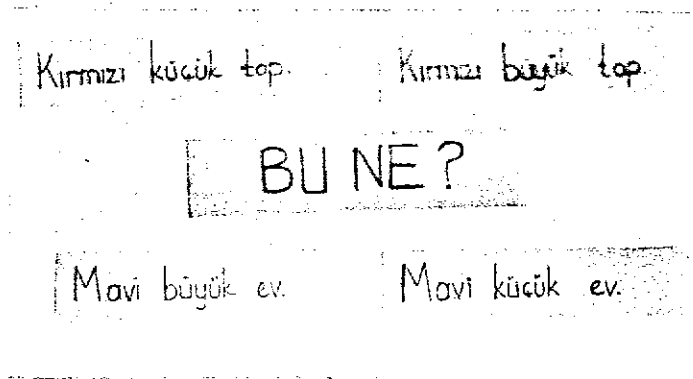 Kırmızı küçük top.
Kırmızı büyük top.
BU NE?
Mavi büyük ev.
Mavi küçük ev.